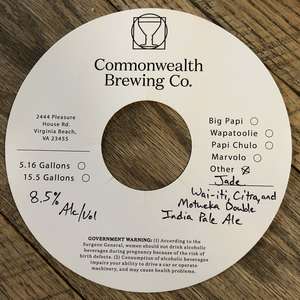 Commonwealth
Brewing Co.
2444 Pleasure
House Rd.
Virginia Beach,
VA 23455
5.16 Gallons
15.5 Gallons
8.5%
Alc/Vol
Big Papi
Wapatoolie
Papi Chulo
Marvolo
Other
Jade
Wai-iti, Citra, and
Motueka Double
India Pale Ale
GOVERNMENT WARNING: (1) According to the
Surgeon General, women should not drink alcoholic
beverages during pregnancy because of the risk of
birth defects. (2) Consumption of alcoholic beverages
impairs your ability to drive a car or operate
machinery, and may cause health problems.